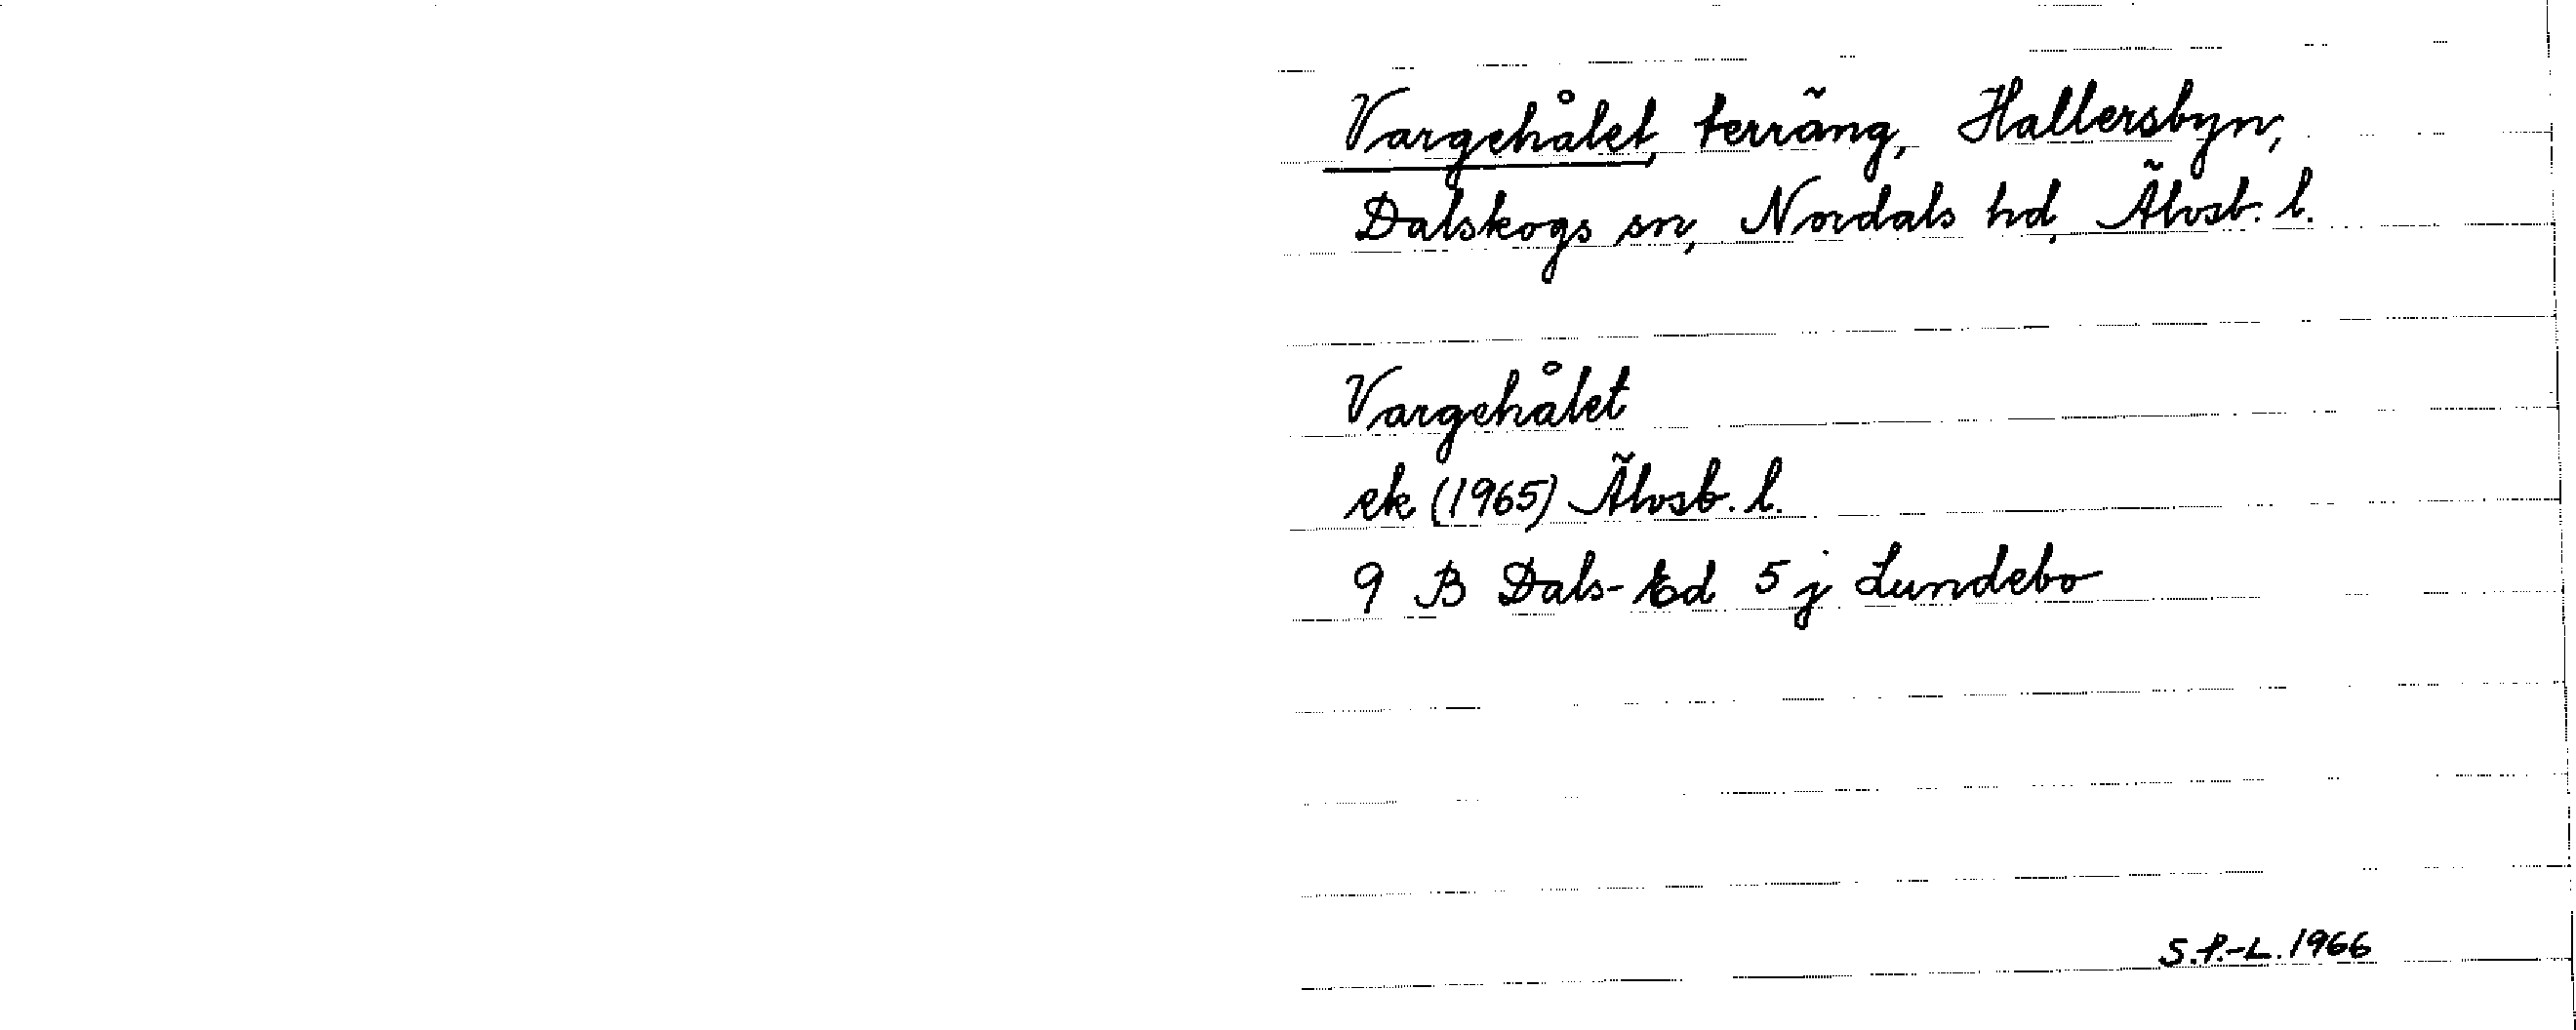 Vargehålet, terräng, Hallersbyn,
Dalskogs sn, Nordals hd, Älvsb. l.
Vargehålet
ek (1965) Älvsb. l.
9 B Dals-Ed 5 j Lundebo
S.P.-L. 1966